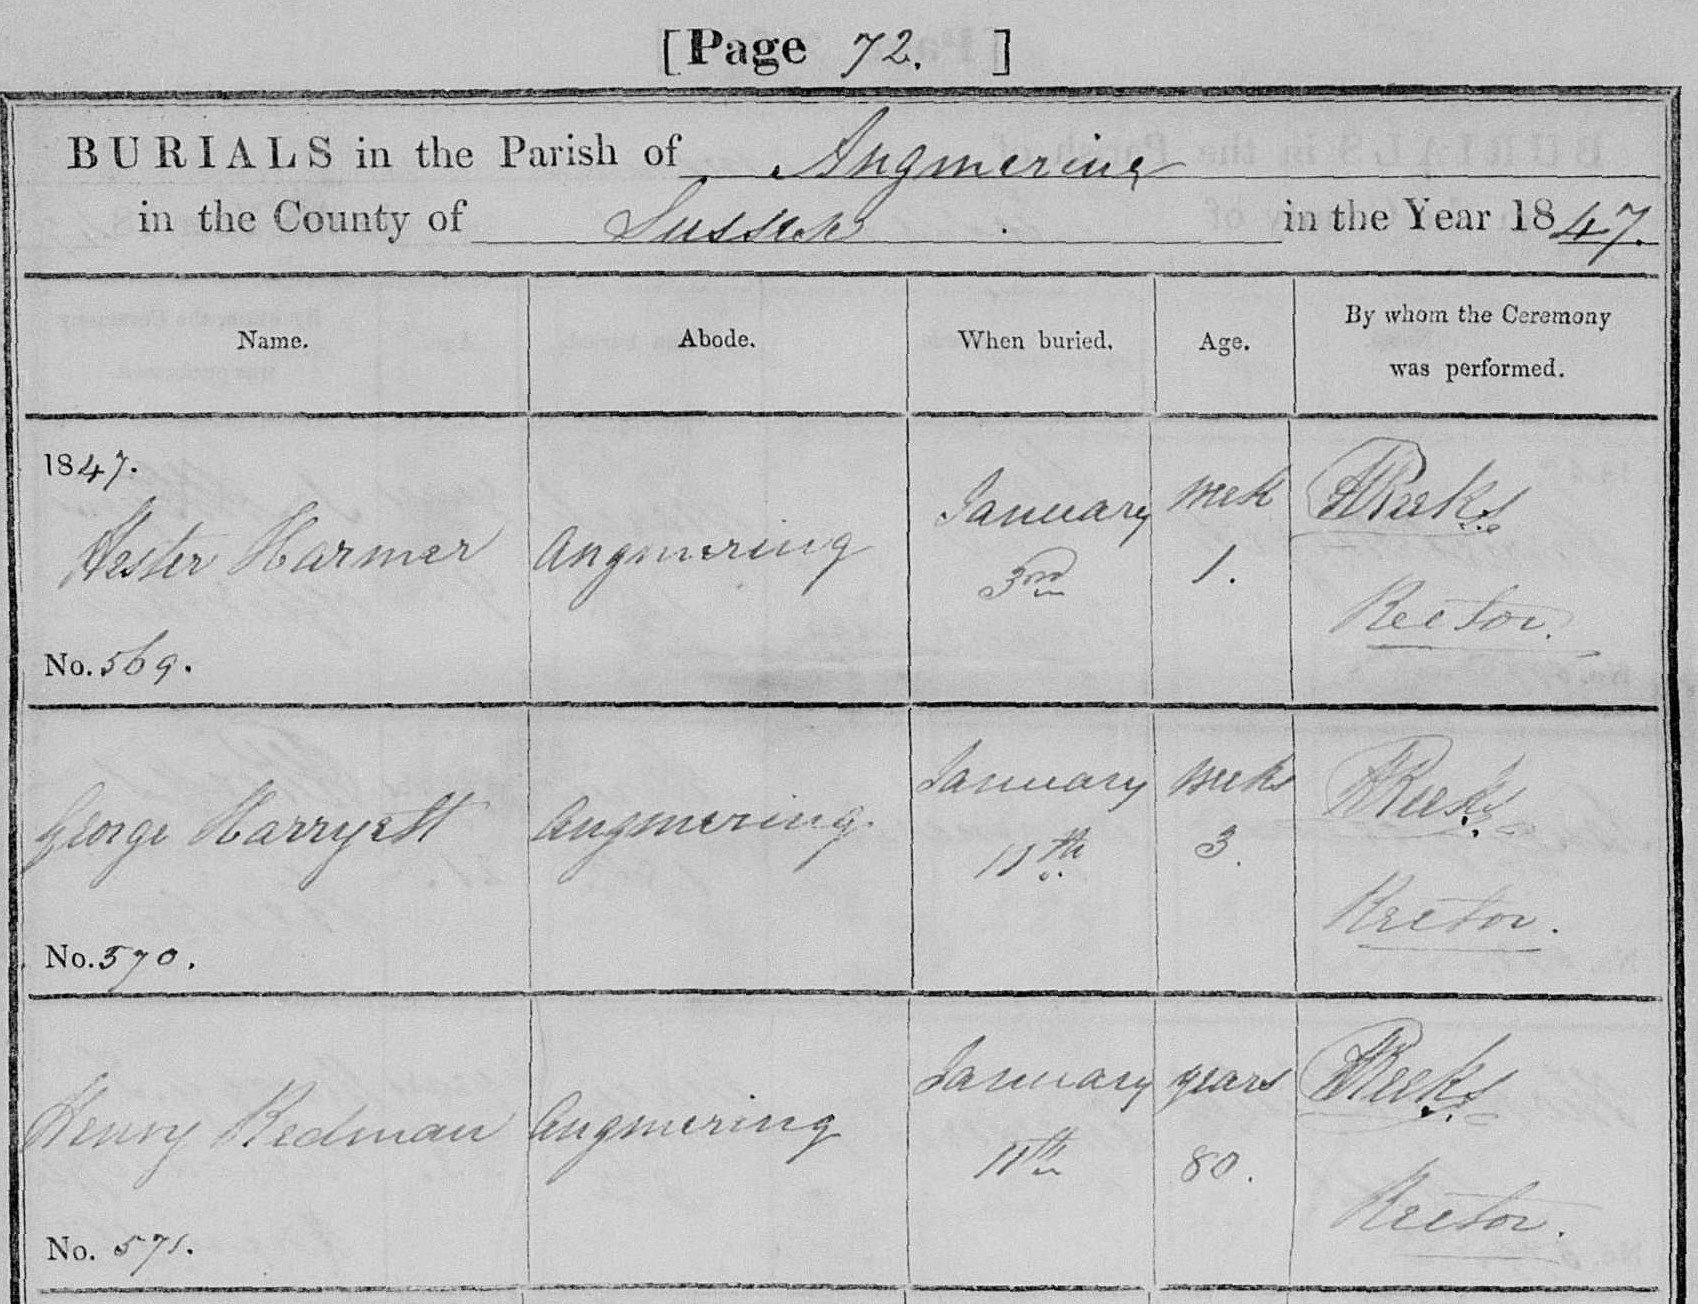 [Page 72. ]
BURIALS in the Parish of Angmering
in the County of Sussex in the Year 1847.
Name. Abode. When buried. Age. By whom the Ceremony was performed.
1847.
Hester Harmer Angmering January 3rd week 1. Reeks Rector.
No. 569.
George Harryett Angmering. January 11th weeks 3. Reeks Rector.
No. 570.
Henry Redman Angmering January 11th years 80. Reeks Rector.
No. 571.